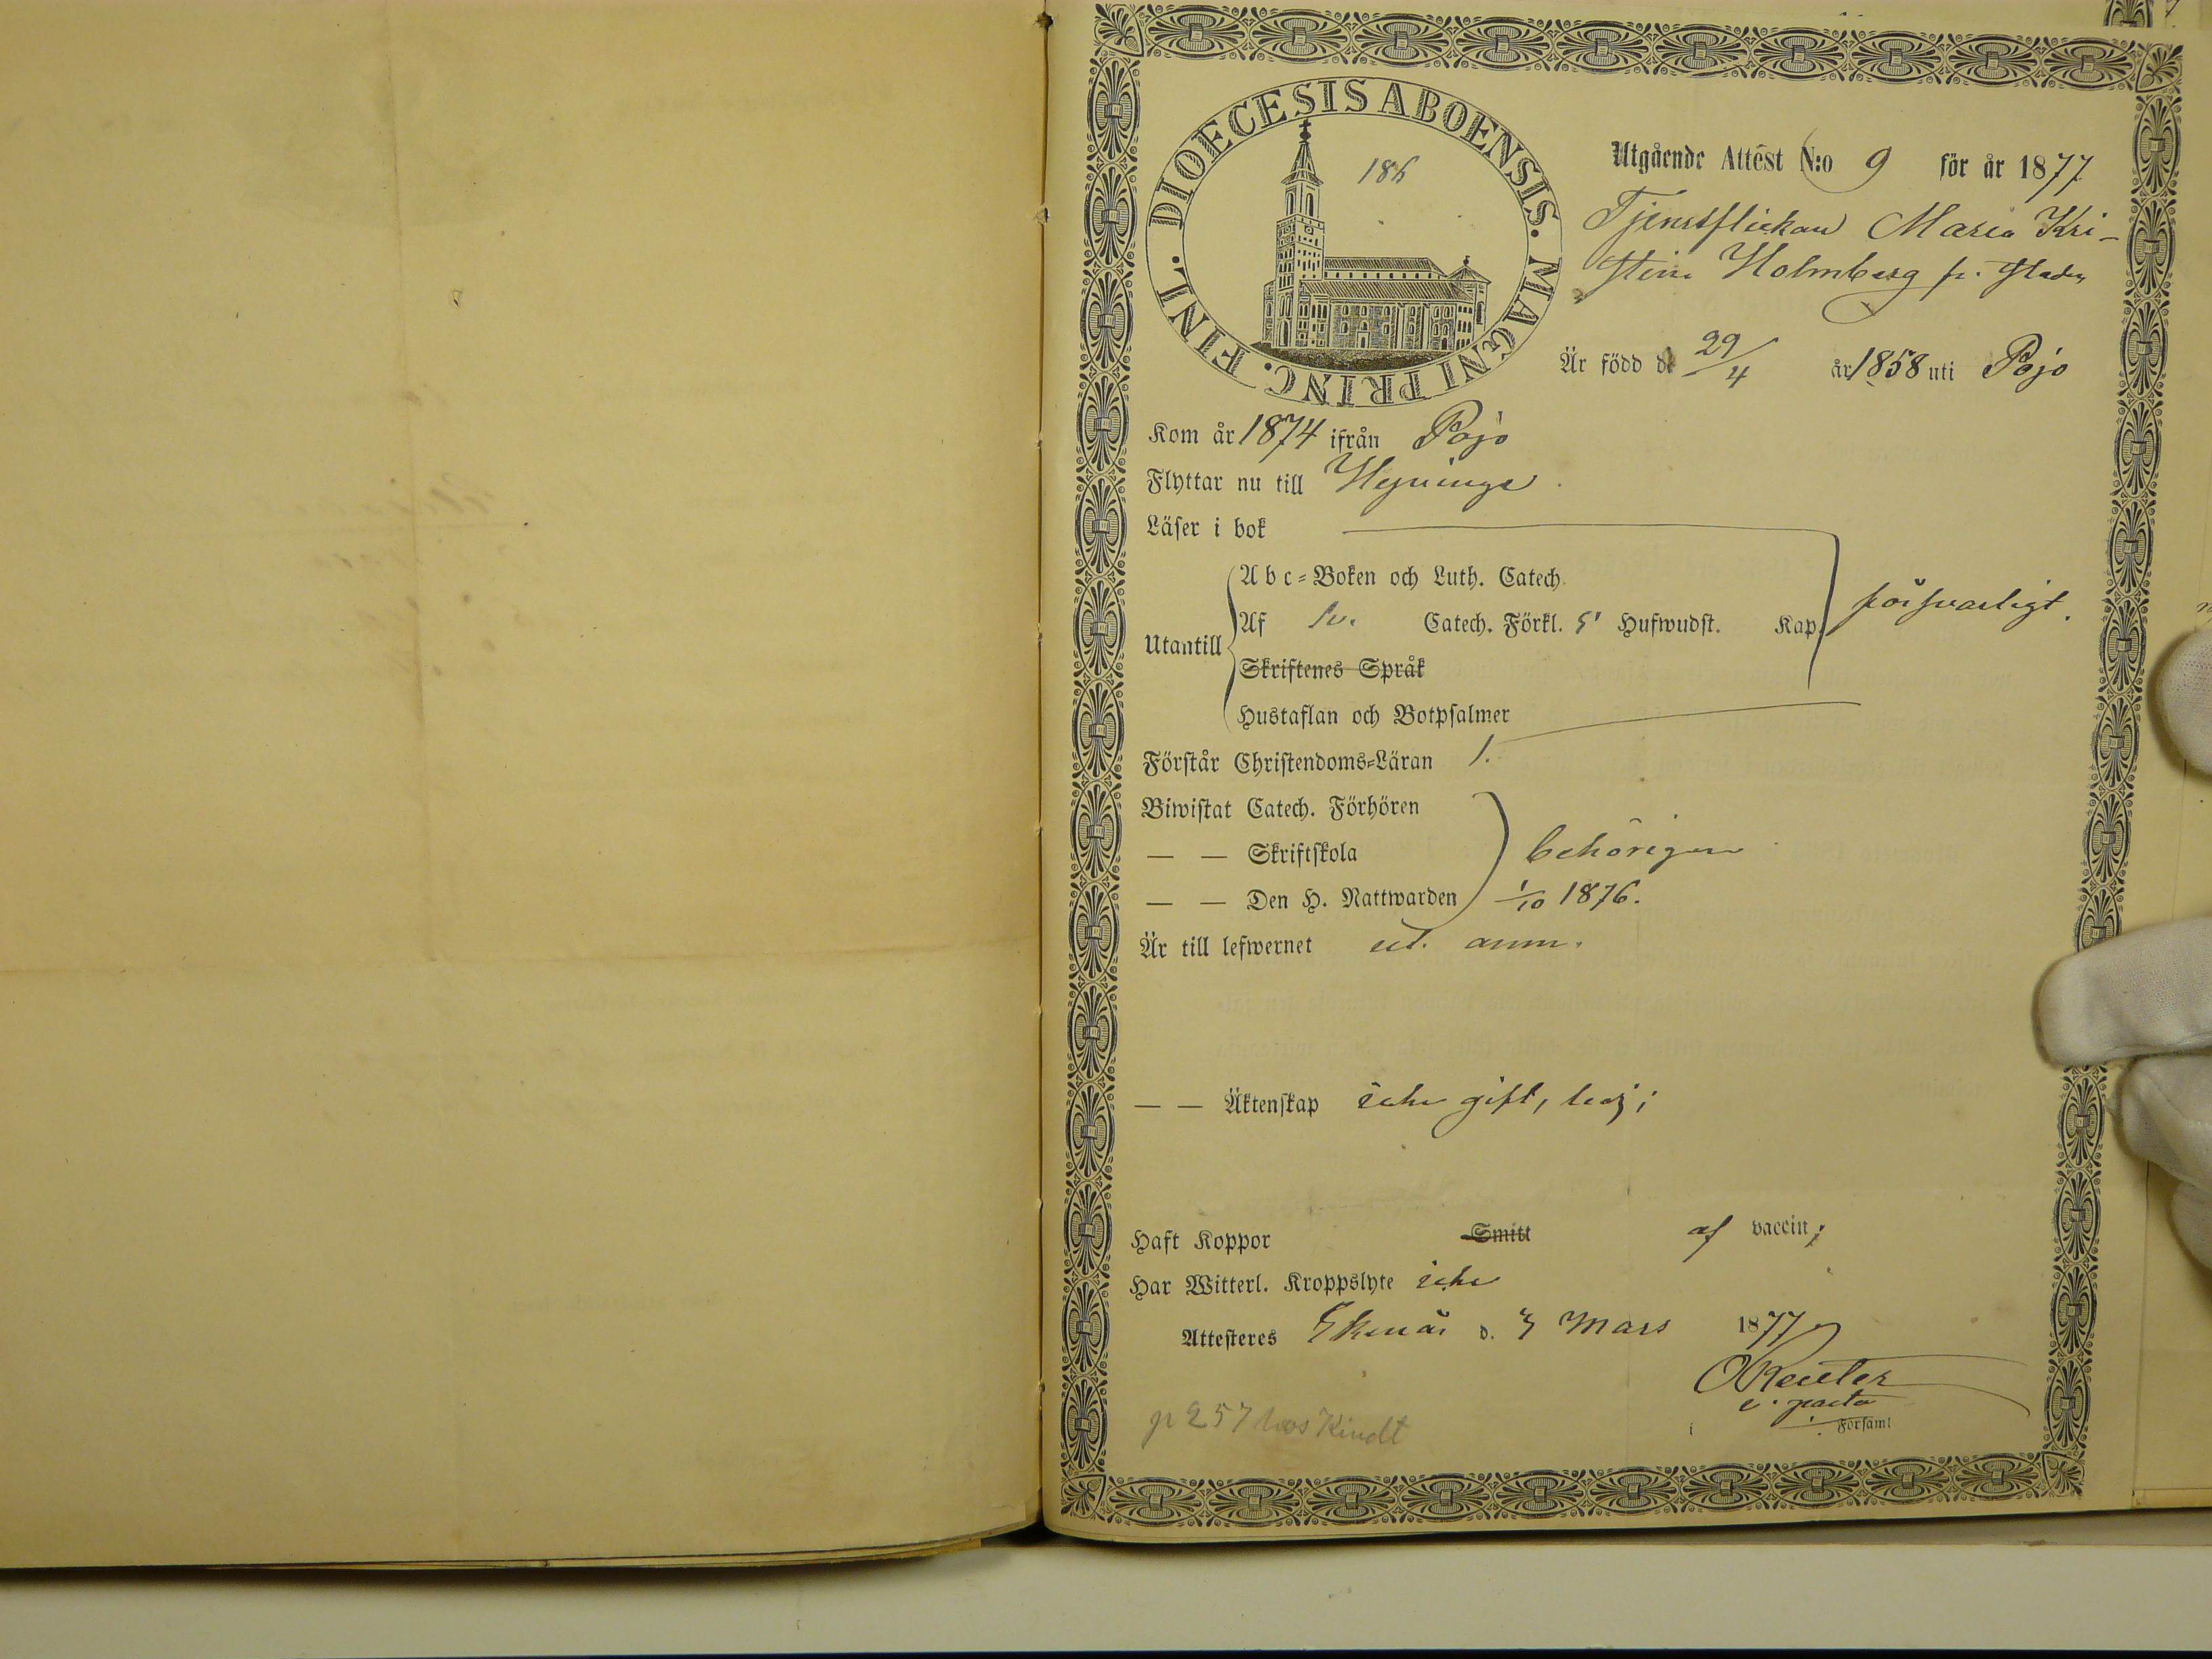 DIOECESIS ABOENSIS. MAGNI PRINC. FINL.
186
Utgående Attest N:o 9 för år 1877
Tjenstflickan Maria Kri-
stina Holmberg fr. staden
Är född d. 29/4 år 1858 uti Pojo
Kom år 1874 ifrån Pojo
Flyttar nu till Hyvinge.
Läser i bok
Abc=Boken och Luth. Catech.
Utantill Af Sv. Catech. Förkl. 5 Hufwudst. Kap. försvarligt.
Skriftenes Språk
Hustaflan och Botpsalmer
Förstår Christendoms=Läran 1.
Biwistat Catech. Förhören
— — Skriftskola behörigen
— — Den H. Nattwarden 1/10 1876.
Är till lefwernet ut. anm.
— — Äktenskap icke gift, ledig;
Haft Koppor Smitt af vaccin;
Har Witterl. Kroppslyte icke
Attesteres Ekenäs d. 7 Mars 1877
O Reuter
i Församl
p 257 hos Kindt